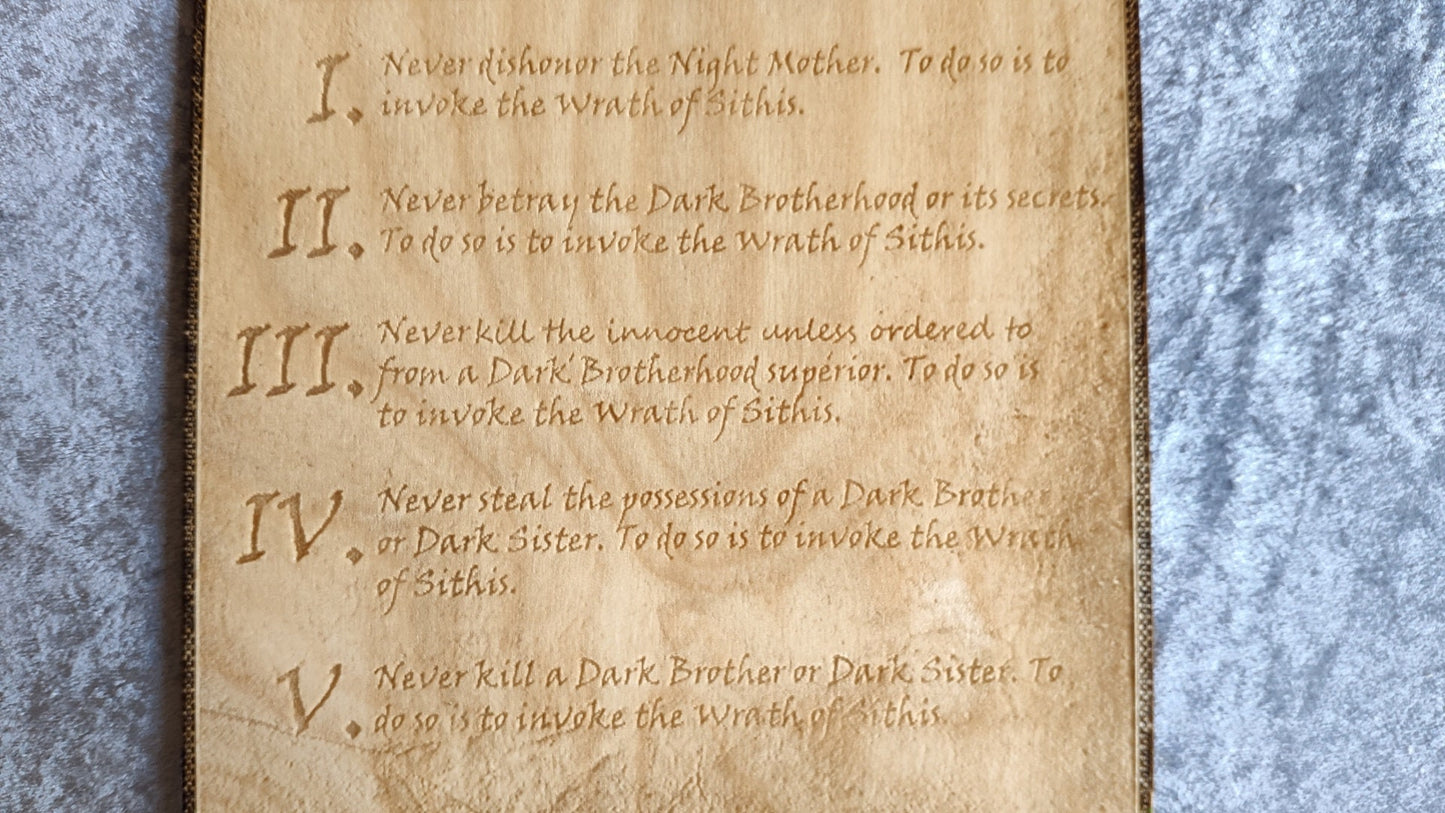 I. Never dishonor the Night Mother. To do so is to
invoke the Wrath of Sithis.
II. Never betray the Dark Brotherhood or its secrets.
To do so is to invoke the Wrath of Sithis.
III. Never kill the innocent unless ordered to
from a Dark Brotherhood superior. To do so is
to invoke the Wrath of Sithis.
IV. Never steal the possessions of a Dark Brother
or Dark Sister. To do so is to invoke the Wrath
of Sithis.
V. Never kill a Dark Brother or Dark Sister. To
do so is to invoke the Wrath of Sithis.